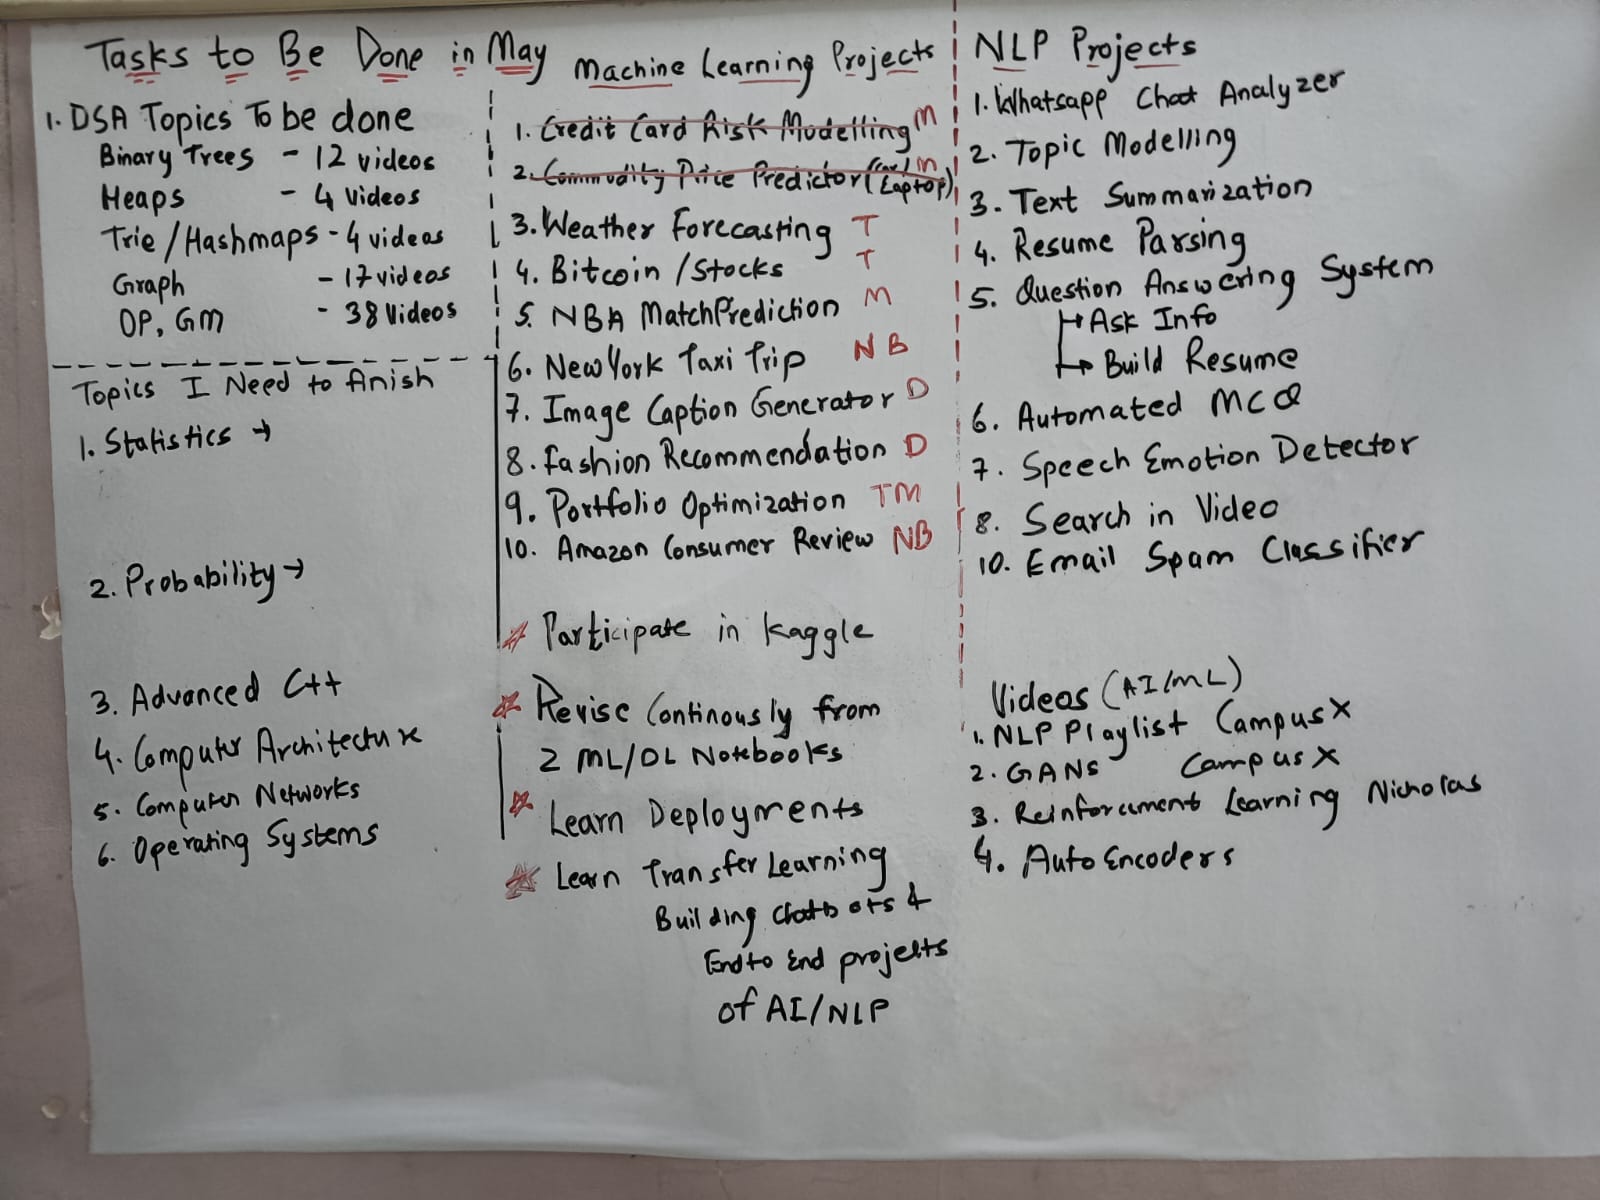 Tasks to Be Done in May
1. DSA Topics To be done
Binary Trees - 12 videos
Heaps - 4 Videos
Trie/Hashmaps - 4 videos
Graph - 17 videos
DP, GM - 38 Videos
Topics I Need to finish
1. Statistics →
2. Probability →
3. Advanced C++
4. Computer Architecture
5. Computer Networks
6. Operating Systems
Machine Learning Projects
1. Credit Card Risk Modelling M
2. Commodity Price Predictor (Car/Laptop) M
3. Weather Forecasting T
4. Bitcoin/Stocks T
5. NBA Match Prediction M
6. New York Taxi Trip NB
7. Image Caption Generator D
8. Fashion Recommendation D
9. Portfolio Optimization TM
10. Amazon Consumer Review NB
Participate in Kaggle
Revise Continously from
2 ML/DL Notebooks
Learn Deployments
Learn Transfer Learning
Building Chatbots &
End to End projects
of AI/NLP
NLP Projects
1. Whatsapp Chat Analyzer
2. Topic Modelling
3. Text Summarization
4. Resume Parsing
5. Question Answering System
→ Ask Info
→ Build Resume
6. Automated MCQ
7. Speech Emotion Detector
8. Search in Video
10. Email Spam Classifier
Videos (AI/ML)
1. NLP Playlist CampusX
2. GANS CampusX
3. Reinforcement Learning Nicholas
4. AutoEncoders